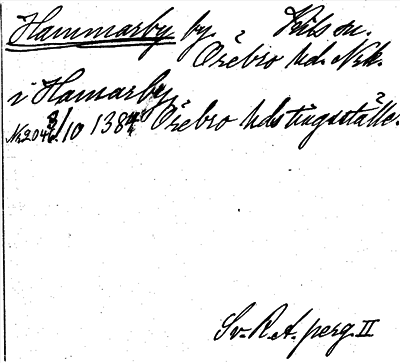 Hammarby by. Kils sn.
Örebro hd. Nrk.
i Hamarby
Nr 2046 8/10 1384 Örebro hds tingsställe.
Sv. R. A. perg. II